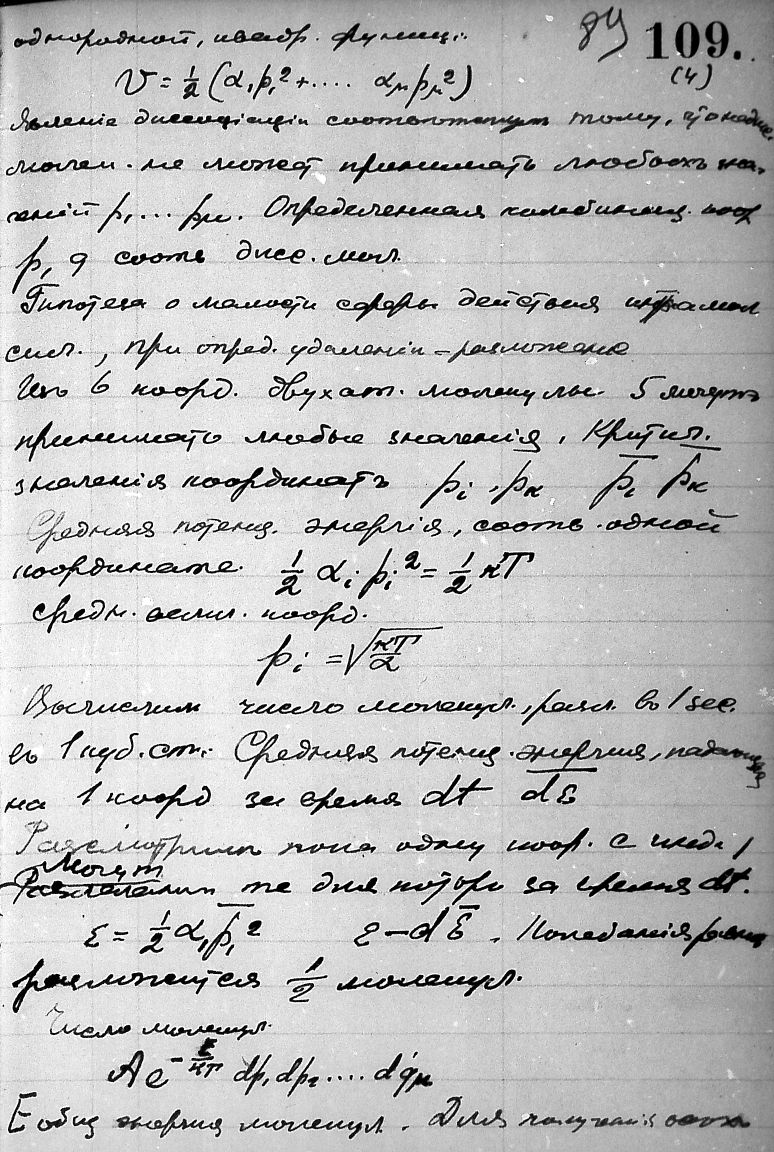 89 109.
(4)
однородной, квадр. функціи.
V = ½ (α₁p₁² + .... αμpμ²)
Явленіе диссоціаціи соответствуетъ тому, что
молек. не можетъ принимать любыхъ зна-
ченій p₁ ... pμ. Определенная комбинац. коор
p, q соотв дисс. мол.
Гипотеза о малости сферы действія интрамол
сил., при опред. удаленіи – разложеніе
Изъ 6 коорд. двухат. молекулы 5 могутъ
принимать любые значенія. Критич.
значенія координатъ pᵢ, pₖ p̅ᵢ p̅ₖ
Средняя потенц. энергія, соотв. одной
координате. ½ αᵢ pᵢ² = ½ кТ
средн. велич. коорд.
pᵢ = √(кТ/α)
Вычислим число молекул., разл. въ 1 sec.
въ 1 куб. cm. Средняя потенц. энергия, падающая
на 1 коорд за время dt d̅ε̅
Разсмотрим пока одну коор. с инд. 1
Могут
те для которы за время dt.
ε = ½ α₁ p̅₁² ε – dε̅. Колебанія
разложится ½ молекул.
Число молекул.
A e^(-E/кТ) dp₁ dp₂ .... dq̇μ
E общ энергия молекул. Для получения